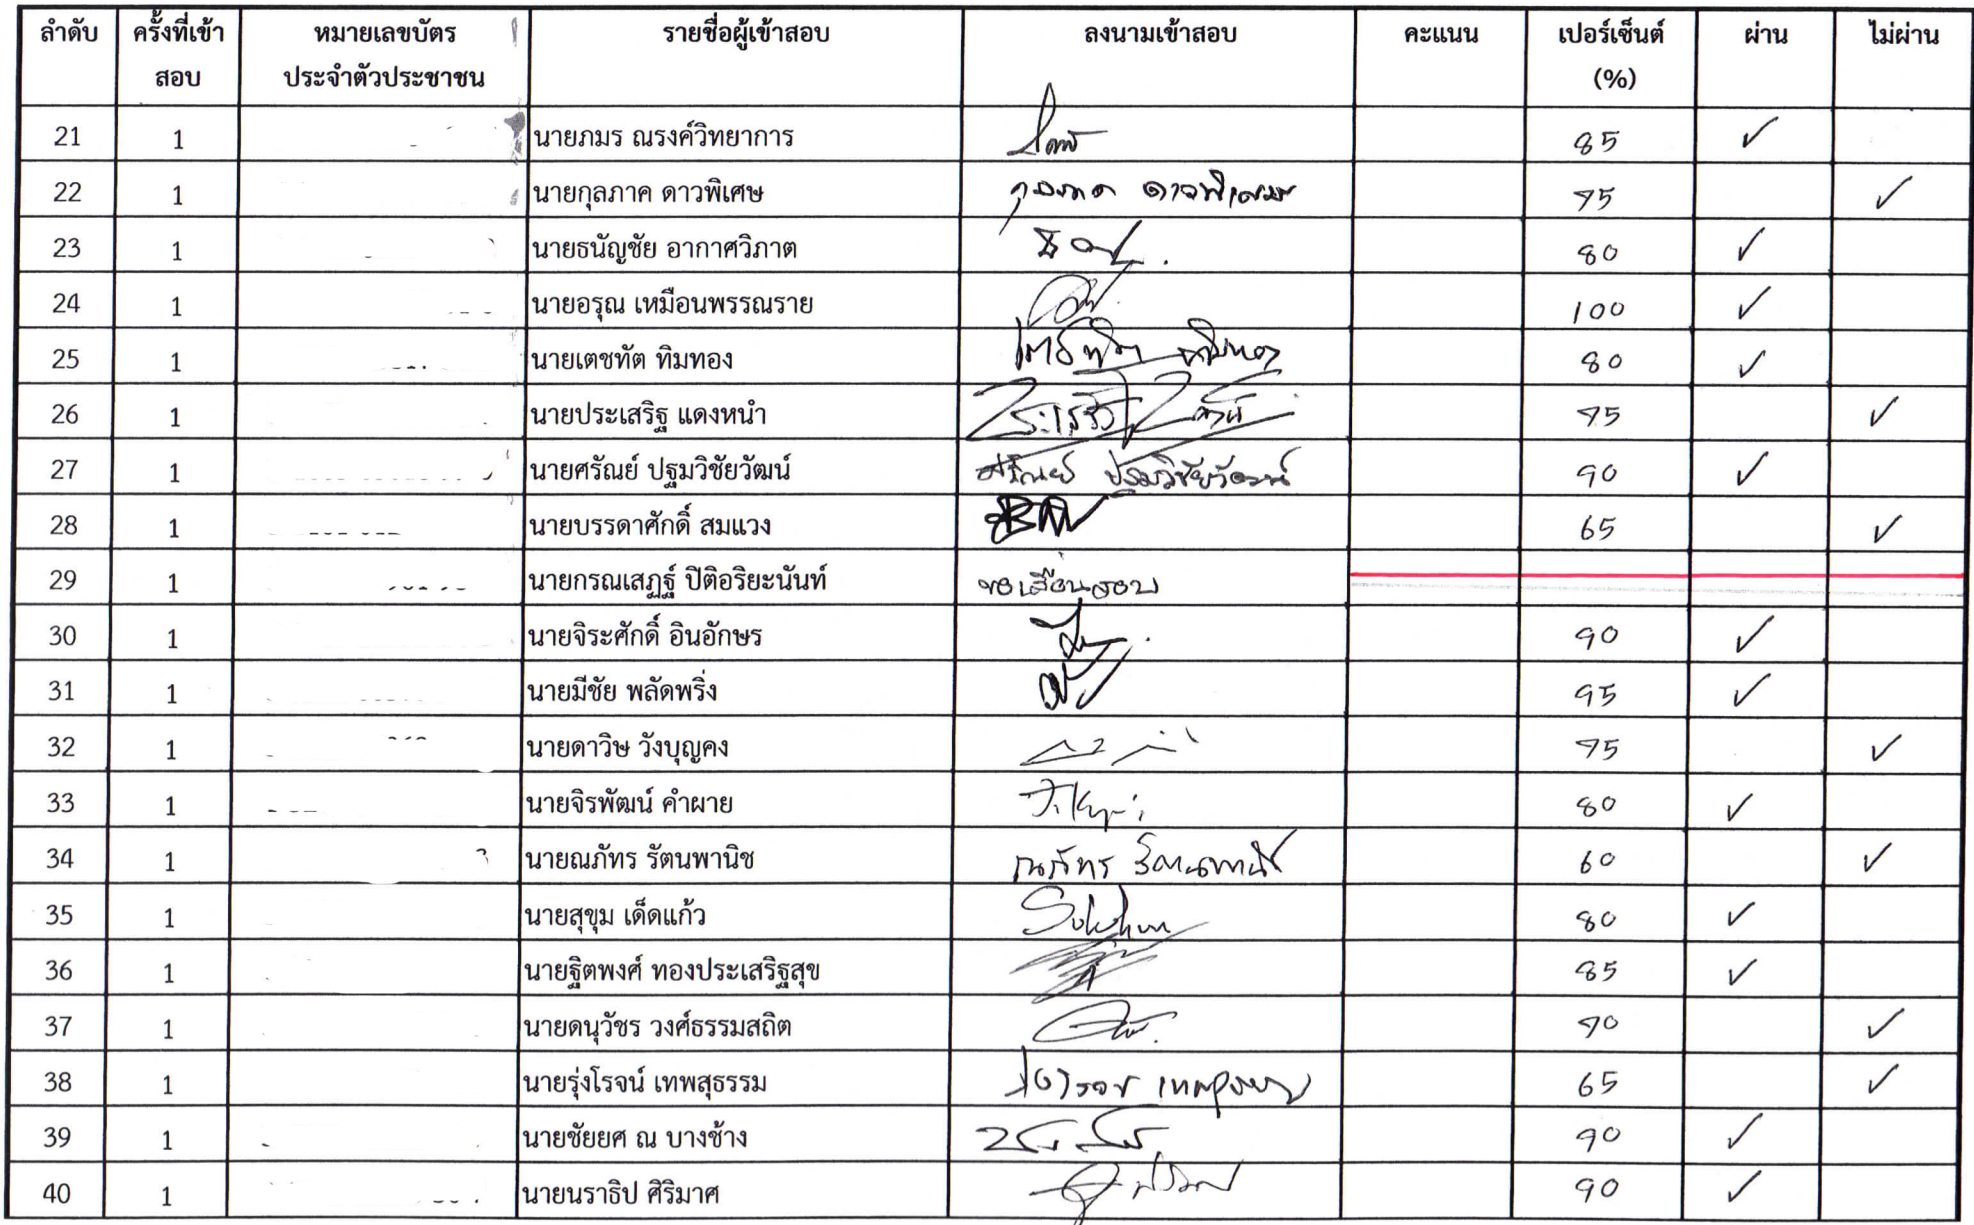 ลำดับ ครั้งที่เข้าสอบ หมายเลขบัตรประจำตัวประชาชน รายชื่อผู้เข้าสอบ ลงนามเข้าสอบ คะแนน เปอร์เซ็นต์ (%) ผ่าน ไม่ผ่าน
21 1 นายภมร ณรงค์วิทยาการ 85 ✓
22 1 นายกุลภาค ดาวพิเศษ กุลภาค ดาวพิเศษ 75 ✓
23 1 นายธนัญชัย อากาศวิภาต 80 ✓
24 1 นายอรุณ เหมือนพรรณราย 100 ✓
25 1 นายเตชทัต ทิมทอง 80 ✓
26 1 นายประเสริฐ แดงหนำ 75 ✓
27 1 นายศรัณย์ ปฐมวิชัยวัฒน์ ศรัณย์ ปฐมวิชัยวัฒน์ 90 ✓
28 1 นายบรรดาศักดิ์ สมแวง 65 ✓
29 1 นายกรณเสฏฐ์ ปิติอริยะนันท์ ขอเลื่อนสอบ
30 1 นายจิระศักดิ์ อินอักษร 90 ✓
31 1 นายมีชัย พลัดพริ่ง 95 ✓
32 1 นายดาวิษ วังบุญคง 75 ✓
33 1 นายจิรพัฒน์ คำผาย 80 ✓
34 1 นายณภัทร รัตนพานิช ณภัทร รัตนพานิช 60 ✓
35 1 นายสุขุม เด็ดแก้ว 80 ✓
36 1 นายฐิตพงศ์ ทองประเสริฐสุข 85 ✓
37 1 นายดนุวัชร วงศ์ธรรมสถิต 70 ✓
38 1 นายรุ่งโรจน์ เทพสุธรรม 65 ✓
39 1 นายชัยยศ ณ บางช้าง 90 ✓
40 1 นายนราธิป ศิริมาศ 90 ✓